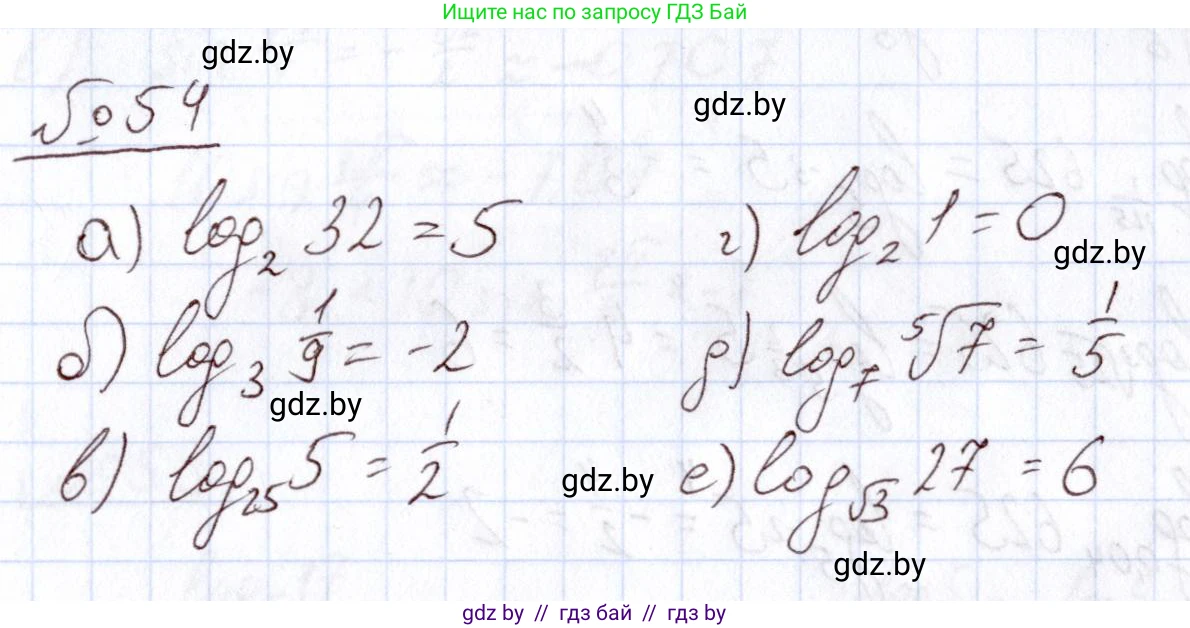 Ищите нас по запросу ГДЗ Бай
gdz.by
gdz.by
№54
а) log₂ 32 = 5
г) log₂ 1 = 0
gdz.by
б) log₃ 1/9 = -2
д) log₇ ⁵√7 = 1/5
gdz.by
в) log₂₅ 5 = 1/2
gdz.by
е) log_√3 27 = 6
gdz.by
gdz by // гдз бай // гдз by